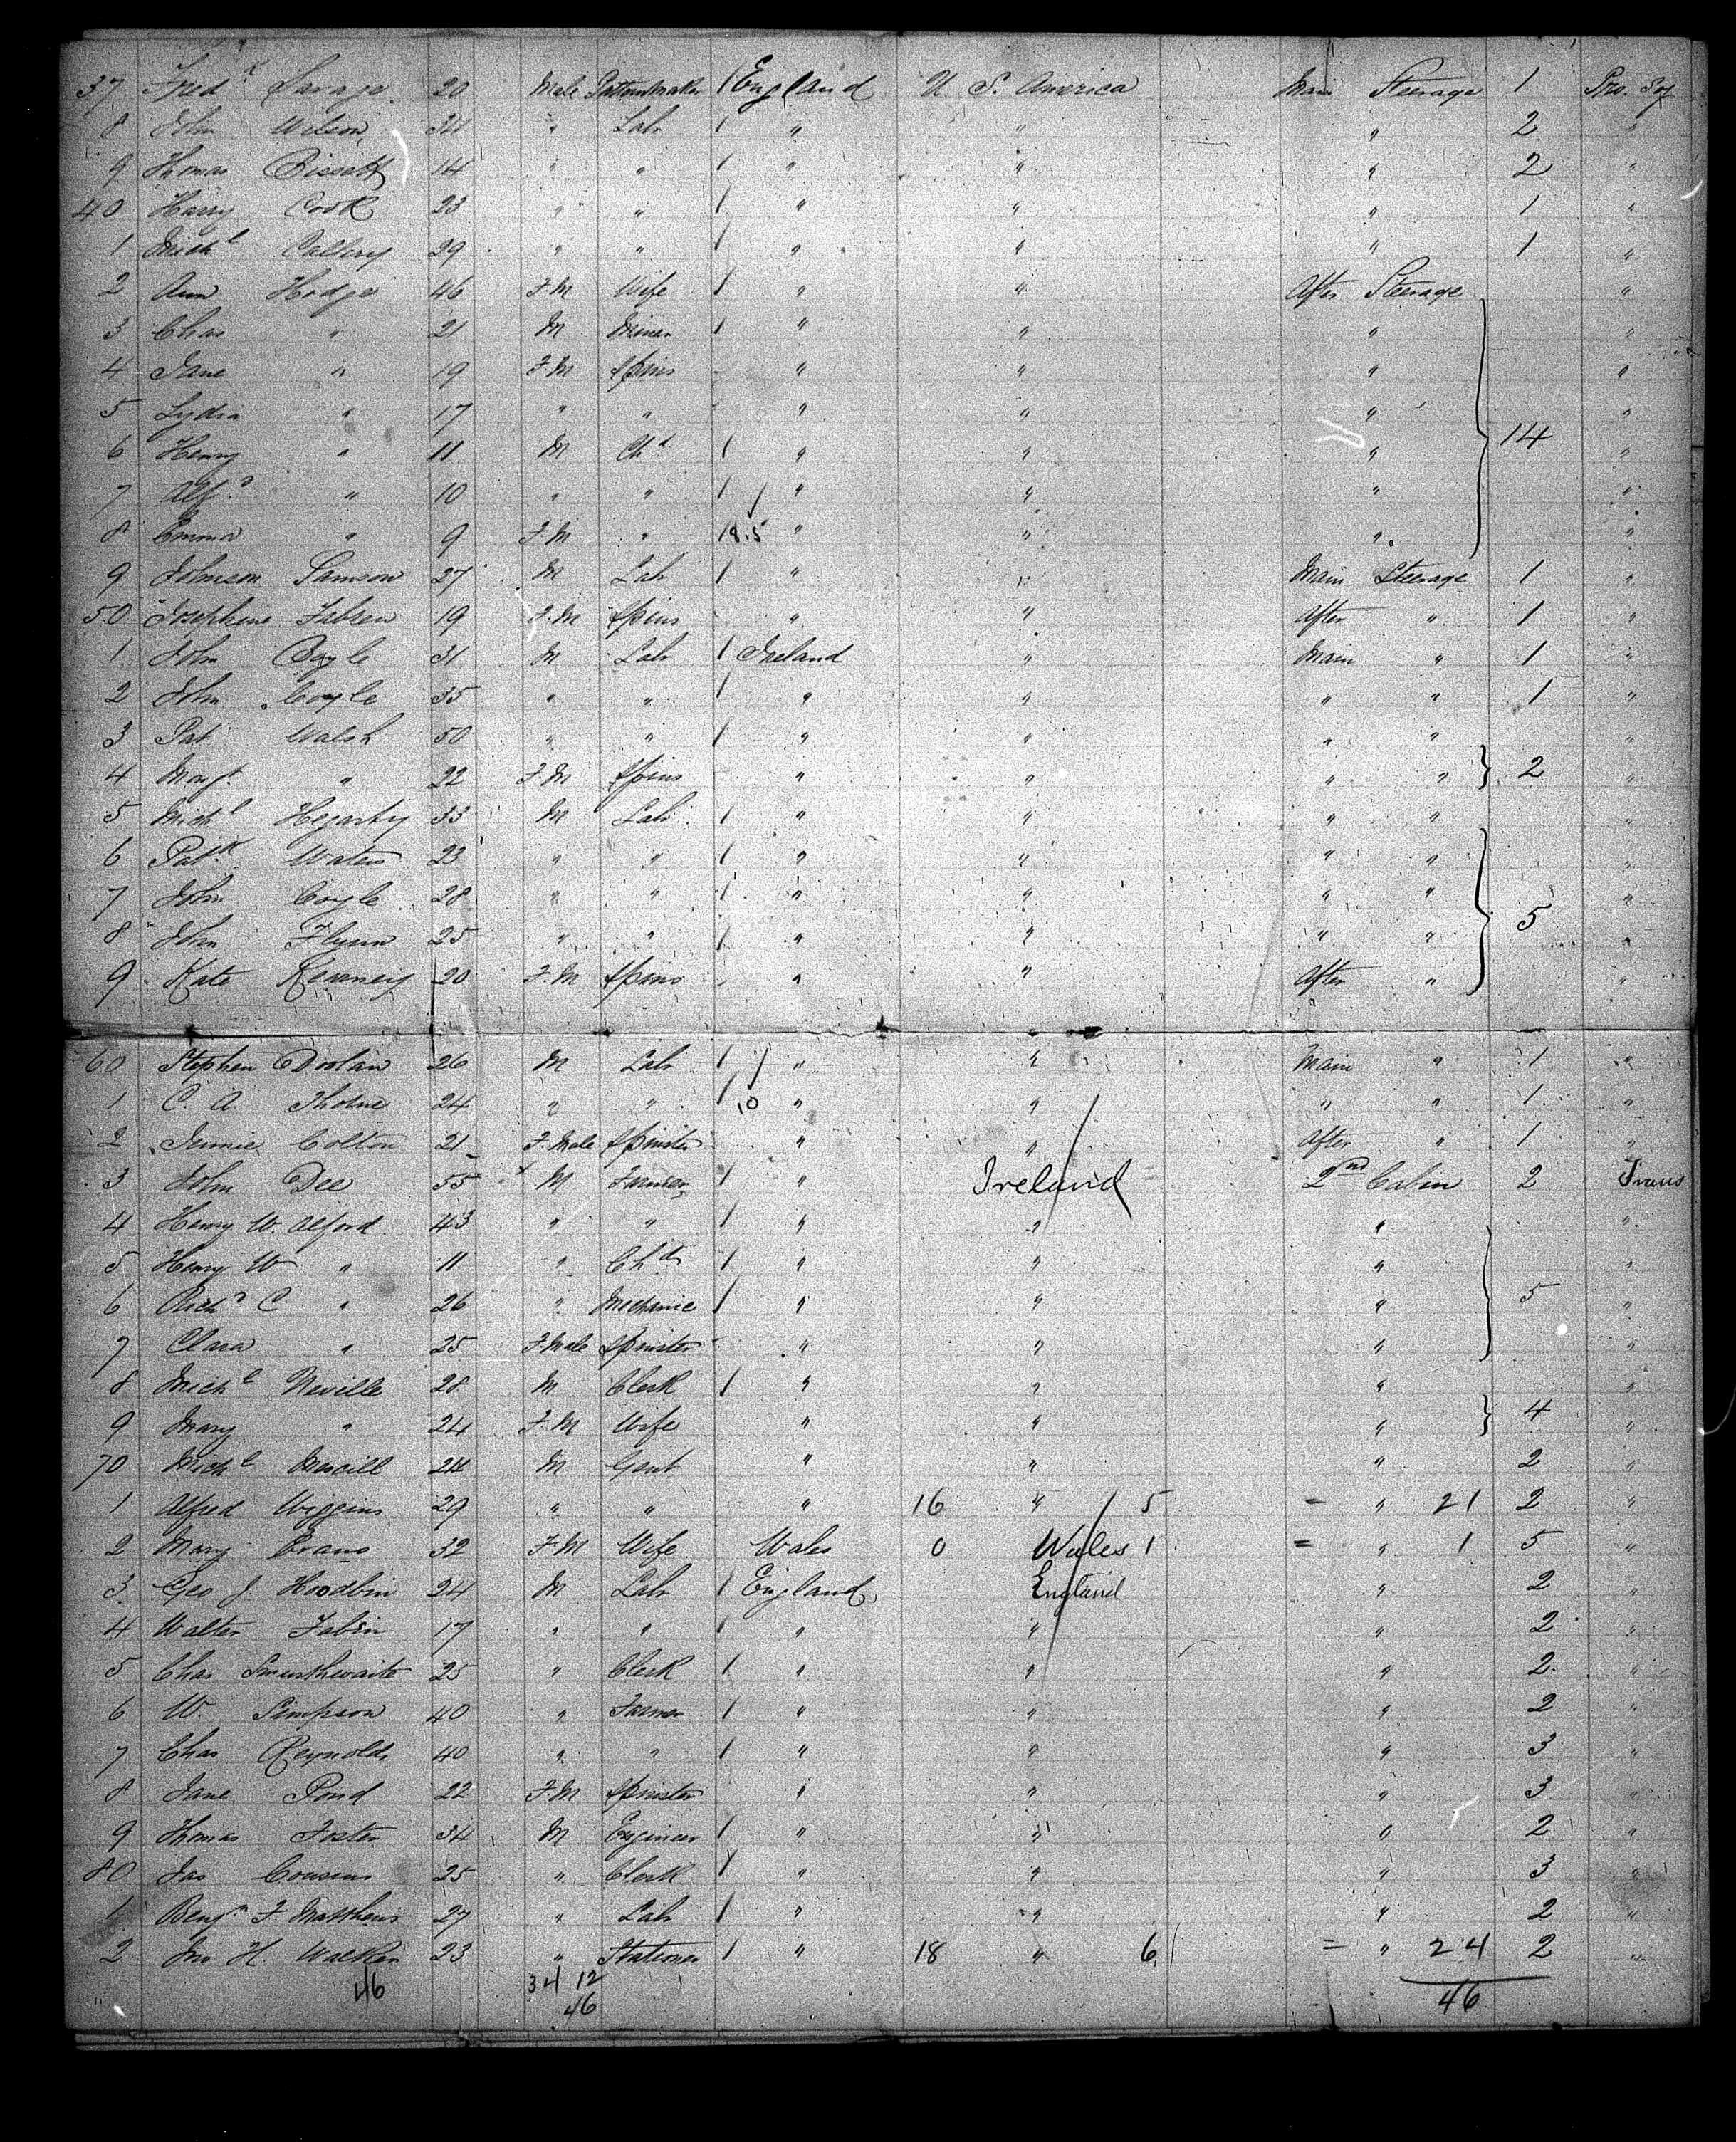 37 Fred.k Savage 20 Male Patternmaker 1 England U S. America Main Steerage 1 Pro. Soj
8 John Wilson 34 " Labr 1 " " " 2 "
9 Thomas Bissett 14 " " 1 " " " 2 "
40 Harry Cook 23 " " 1 " " " 1 "
1 Michl Callery 29 " " 1 " " " 1 "
2 Ann Hodge 46 F.M Wife 1 " " After Steerage "
3 Chas " 21 M Miner 1 " " " "
4 Jane " 19 F.M Spins " " " "
5 Lydia " 17 " " " " " "
6 Henry " 11 M Chd 1 " " " 14 "
7 Alfd " 10 " " 1 " " " "
8 Emma " 9 F.M " 18.5 " " " "
9 Johnson Samson 27 M Labr 1 " " Main Steerage 1 "
50 Josephine 19 F.M Spins " " After " 1 "
1 John Boyle 31 M Labr 1 Ireland " Main " 1 "
2 John Coyle 35 " " 1 " " " " 1 "
3 Pat Walsh 50 " " 1 " " " " "
4 Margt " 22 F.M Spins " " " " 2 "
5 Michl Hegarty 33 M Labr 1 " " " " "
6 Patk Waters 23 " " 1 " " " " "
7 John Coyle 28 " " 1 " " " " "
8 John Flynn 25 " " 1 " " " " 5 "
9 Kate Kearney 20 F.M Spins " " After " "
60 Stephen Doolan 26 M Labr 1 " " Main " 1 "
1 C. A Thorne 24 " " 1 10 " " " " 1 "
2 Jennie Colton 21 F.Male Spinster " " After " 1 "
3 John Dee 55 M Farmer 1 " Ireland 2nd Cabin 2 Trans
4 Henry W. Alford 43 " " 1 " " " "
5 Henry W " 11 " Chd 1 " " " "
6 Richd C " 26 " Mechanic 1 " " " 5 "
7 Clara " 25 F.Male Spinster " " " "
8 Michl Neville 28 M Clerk 1 " " " "
9 Mary " 24 F.M Wife " " " 4 "
70 Michl 24 M Gent " " " 2 "
1 Alfred Wiggins 29 " " " 16 " 5 = " 21 2 "
2 Mary Evans 32 F.M Wife Wales 0 Wales 1 = " 1 5 "
3 Geo J. Hoodbin 24 M Labr 1 England England " 2 "
4 Walter Fabin 17 " " 1 " " " 2 "
5 Chas Smurthwaite 25 " Clerk 1 " " " 2 "
6 W. Simpson 40 " Farmer 1 " " " 2 "
7 Chas Reynolds 40 " " 1 " " " 3 "
8 Jane Pond 22 F.M Spinster " " " 3 "
9 Thomas Foster 34 M Engineer 1 " " " 2 "
80 Jas Cousins 25 " Clerk 1 " " " 3 "
1 Benjn F Matthews 27 " Labr 1 " " " 2 "
2 Jno H. Walker 23 " Stationer 1 " 18 " 6 = " 24 2 "
46 34 12 46
46